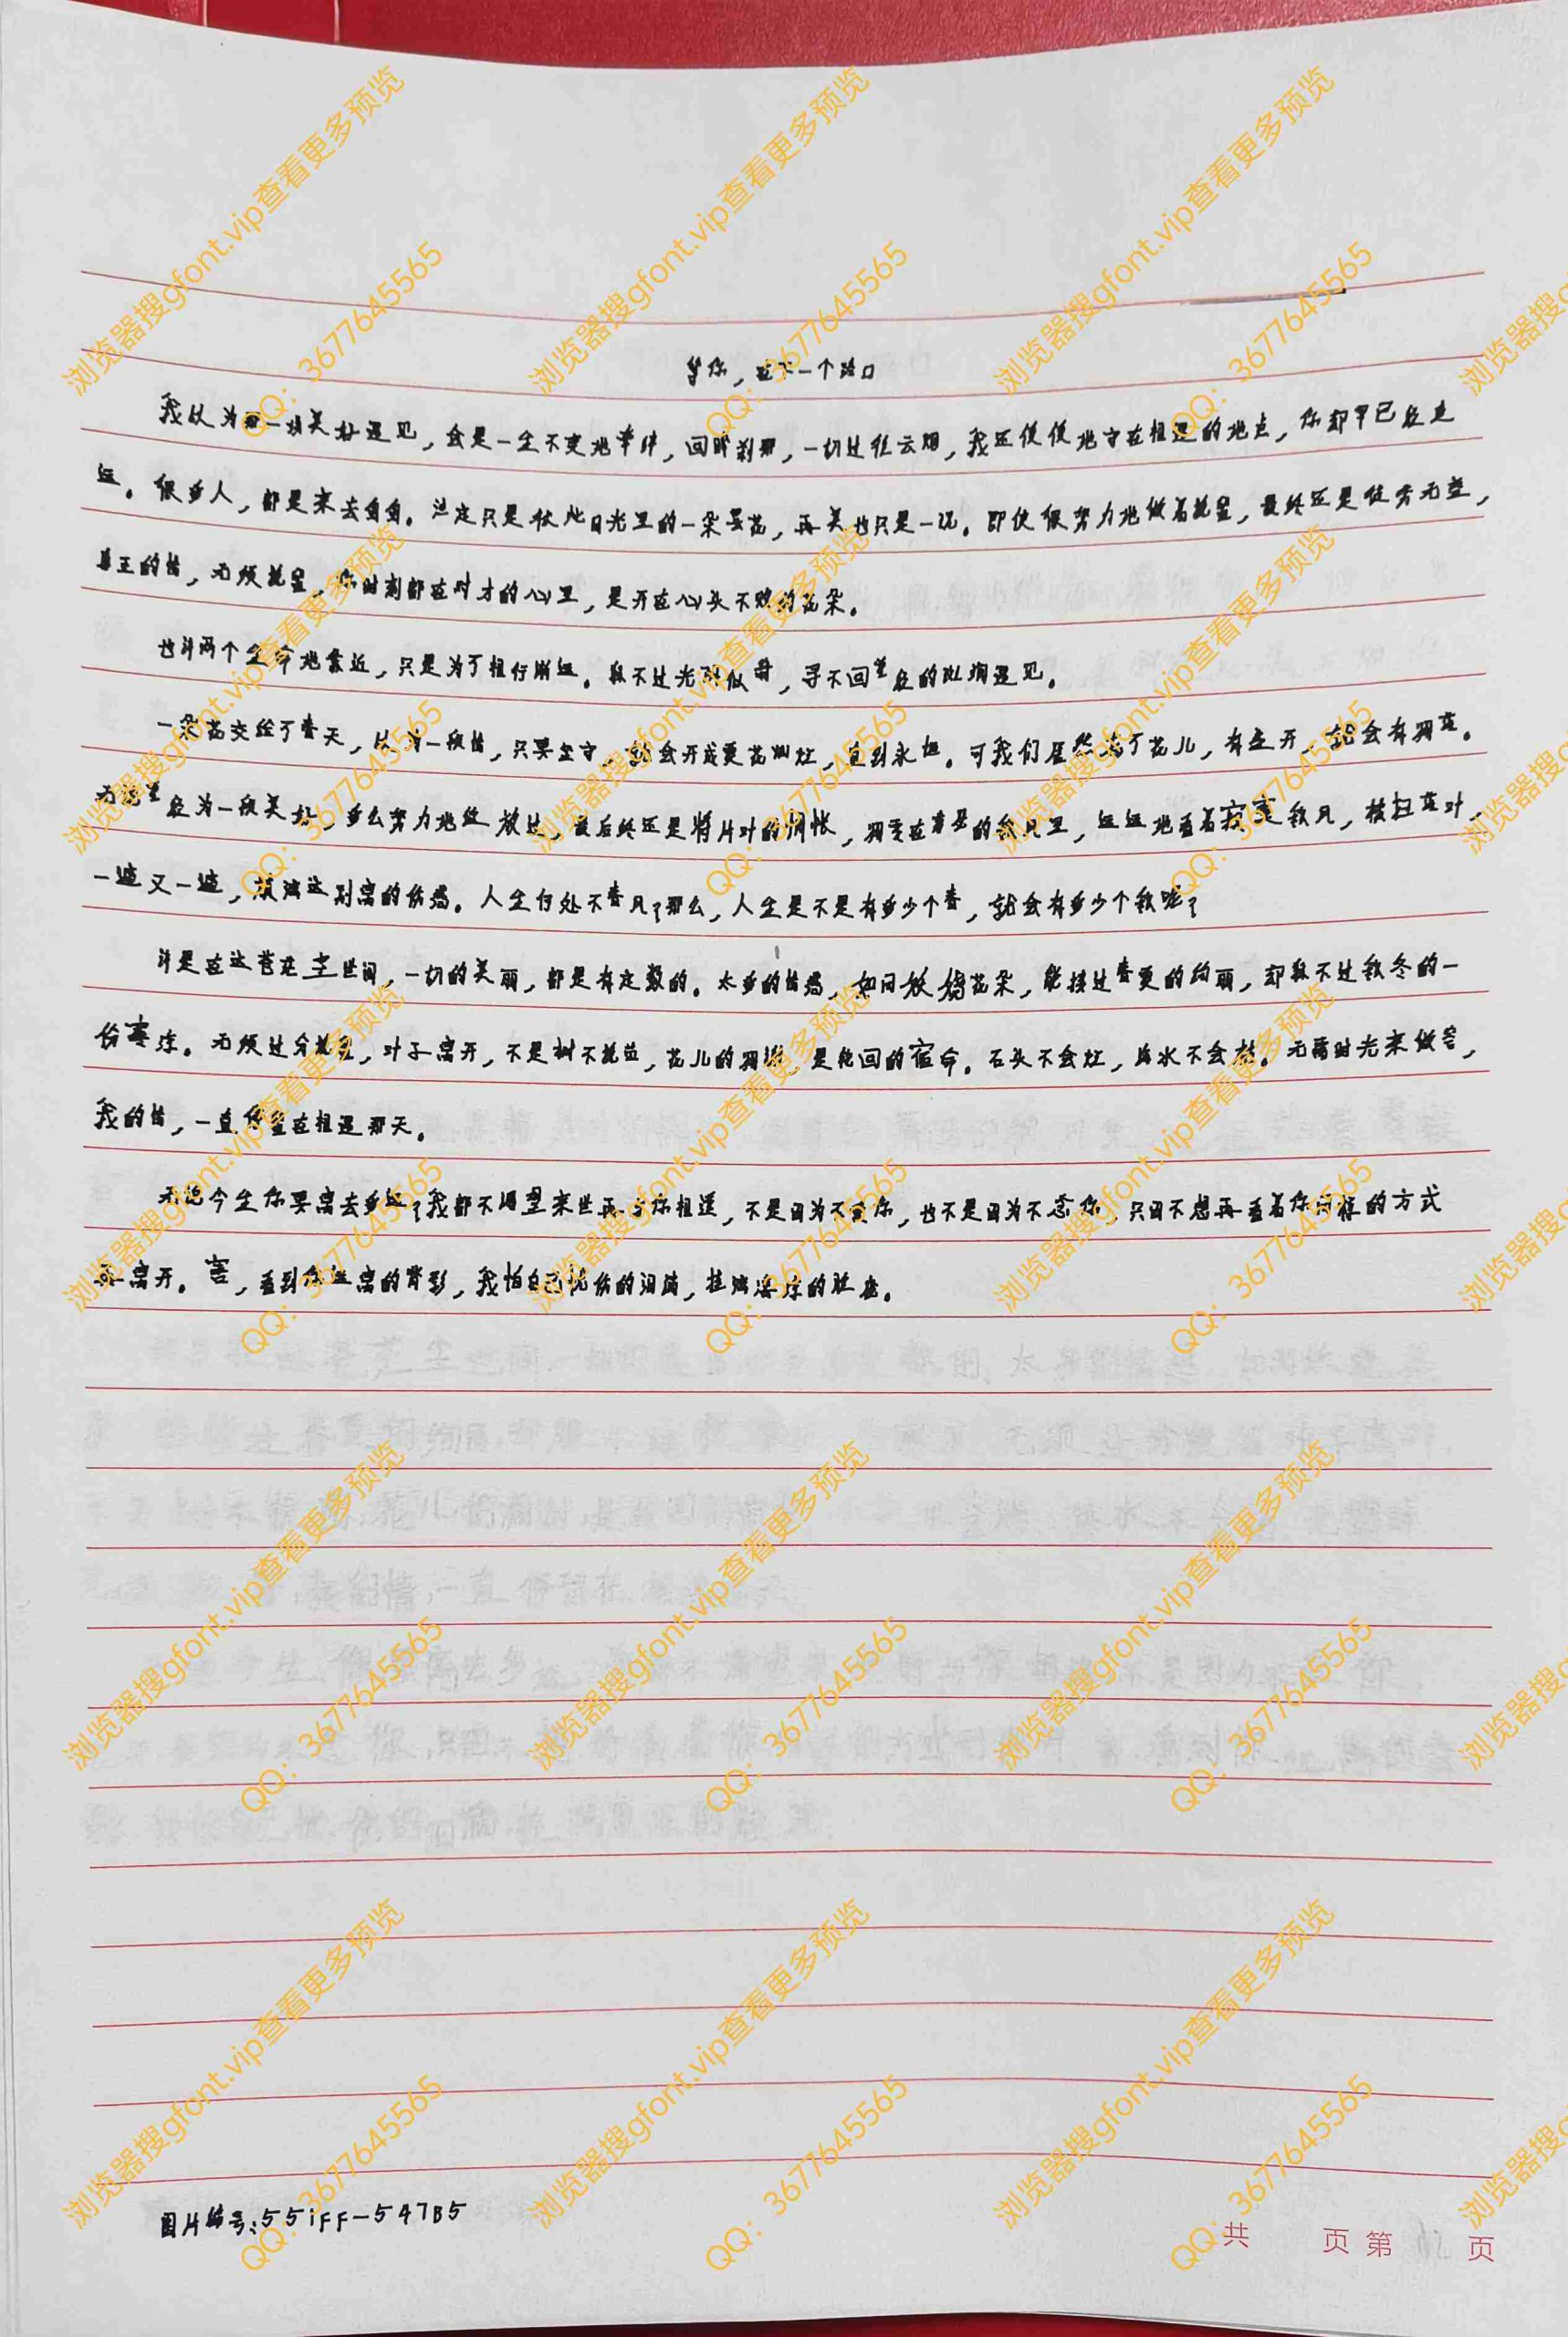 等你，在下一个路口
我以为那一场美好遇见，会是一生不变地牵绊，回眸刹那，一切过往云烟，我还傻傻地守在相遇的地点，你却早已经走
远。很多人，都是来去匆匆。注定只是依此日光里的一朵昙花，再美也只是一现。即使很努力地做着挽留，最终还是徒劳无益，
真正的情，无须挽留，你时刻都在对方的心里，是开在心头不败的花朵。
也许两个生命地靠近，只是为了相行渐远。敌不过光阴似箭，寻不回曾经的斑斓遇见。
一朵花交给了春天，以为一段情，只要坚守，就会开成更花灿烂，直到永恒。可我们居然忘了花儿，有盛开，就会有凋落。
无论曾经为一段美好，多么努力地绽放过，最后终还是将片叶的惆怅，凋零在萧瑟的秋风里，远远地看着寂寞秋风，横扫落叶，
一遍又一遍，填满这别离的伤感。人生何处不春风？那么，人生是不是有多少个春，就会有多少个秋呢？
许是在这苍茫尘世间，一切的美丽，都是有定数的。太多的情感，如同妖娆花朵，能挨过春夏的绚丽，却敌不过秋冬的一
份寒凉。无须过分挽留，叶子离开，不是树不挽留，花儿的凋谢，是轮回的宿命。石头不会烂，海水不会枯。无需时光来做答，
我的情，一直停留在相遇那天。
无论今生你要离去多远？我都不渴望来世再与你相逢，不是因为不爱你，也不是因为不念你，只因不想再看着你同样的方式
再离开。害，看到你远离的背影，我怕自己忧伤的泪滴，挂满凄凉的脸庞。
图片编号：55iFF-547B5
共 页 第 页
浏览器搜gfont.vip查看更多预览
QQ：3677645565